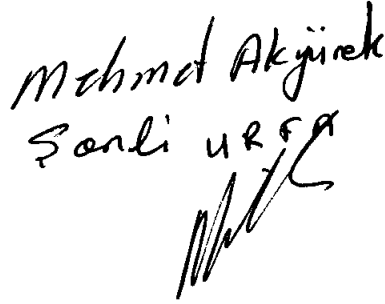 Mehmet Akyürek
Şanli URFA